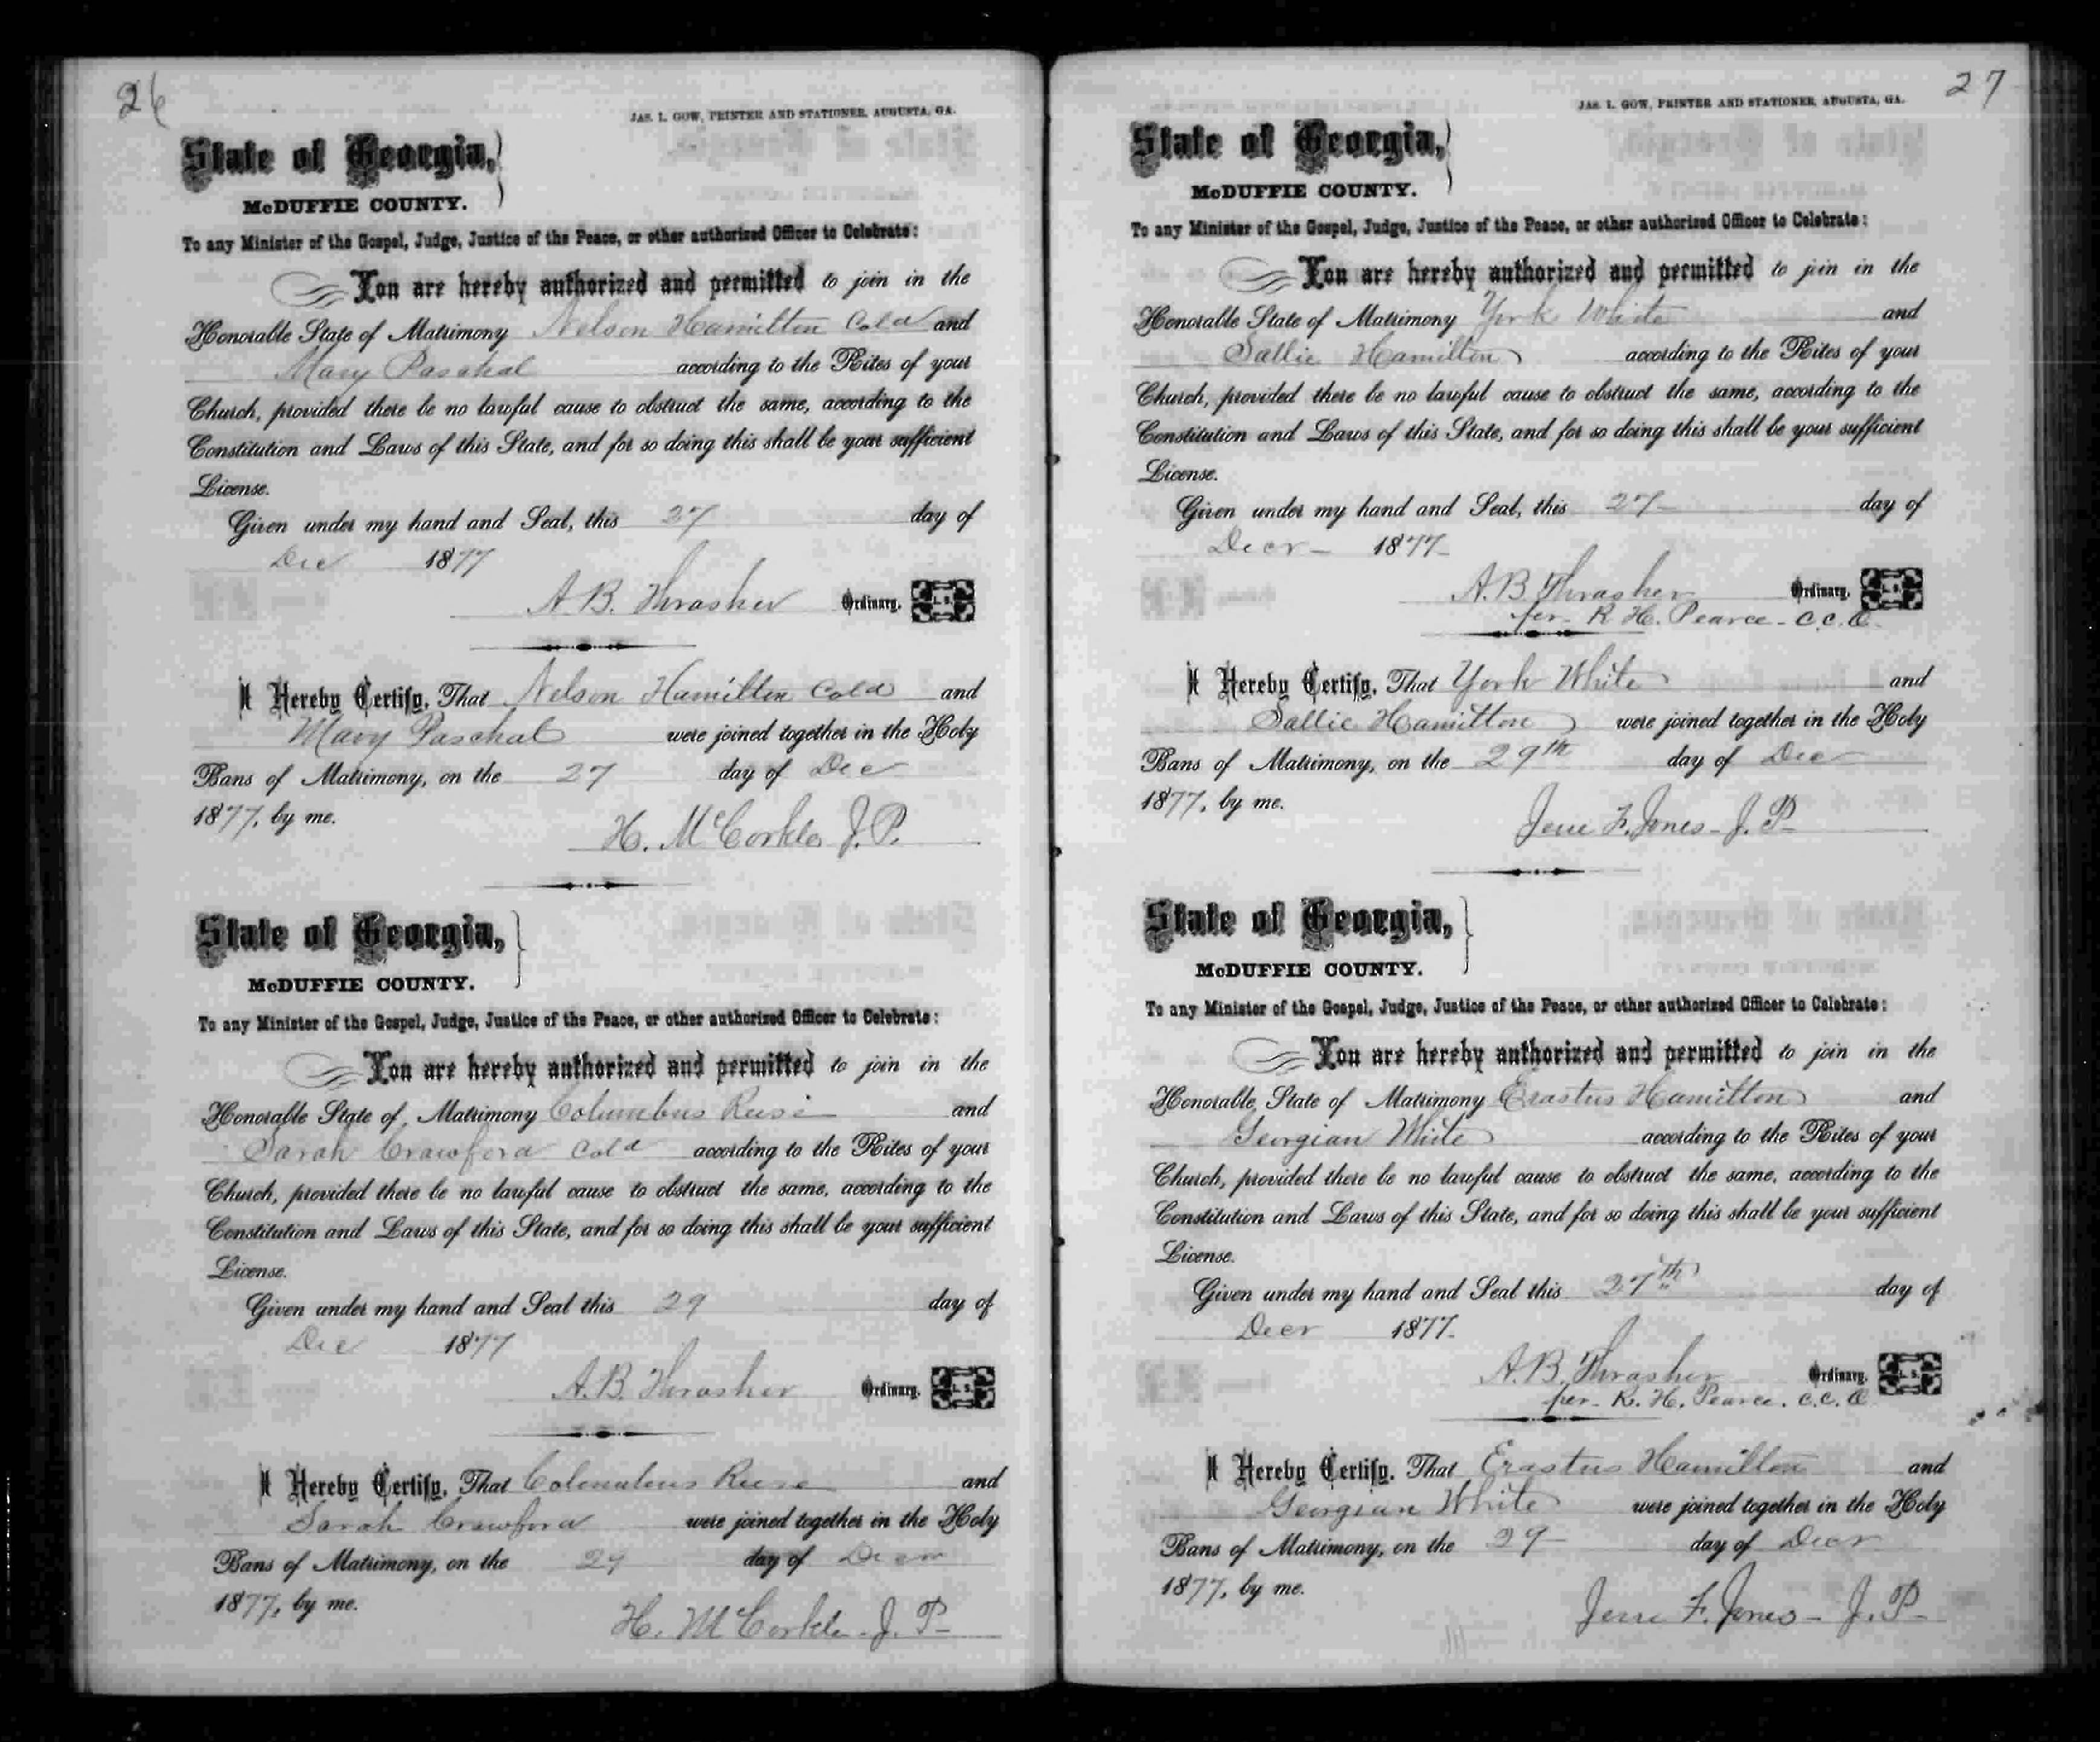 26
JAS. L. GOW, PRINTER AND STATIONER, AUGUSTA, GA.
State of Georgia,
McDUFFIE COUNTY.
To any Minister of the Gospel, Judge, Justice of the Peace, or other authorized Officer to Celebrate:
You are hereby authorized and permitted to join in the
Honorable State of Matrimony Nelson Hamilton Cold and
Mary Paschal according to the Rites of your
Church, provided there be no lawful cause to obstruct the same, according to the
Constitution and Laws of this State, and for so doing this shall be your sufficient
License.
Given under my hand and Seal, this 27 day of
Dec 1877
A. B. Thrasher Ordinary. L. S.
I Hereby Certify, That Nelson Hamilton Cold and
Mary Paschal were joined together in the Holy
Bans of Matrimony, on the 27 day of Dec
1877, by me.
H. McCorkle J. P.
State of Georgia,
McDUFFIE COUNTY.
To any Minister of the Gospel, Judge, Justice of the Peace, or other authorized Officer to Celebrate:
You are hereby authorized and permitted to join in the
Honorable State of Matrimony Columbus Reese and
Sarah Crawford Cold according to the Rites of your
Church, provided there be no lawful cause to obstruct the same, according to the
Constitution and Laws of this State, and for so doing this shall be your sufficient
License.
Given under my hand and Seal this 29 day of
Dec 1877
A. B. Thrasher Ordinary. L. S.
I Hereby Certify, That Columbus Reese and
Sarah Crawford were joined together in the Holy
Bans of Matrimony, on the 29 day of Decr
1877, by me.
H. McCorkle J. P.
27
JAS. L. GOW, PRINTER AND STATIONER, AUGUSTA, GA.
State of Georgia,
McDUFFIE COUNTY.
To any Minister of the Gospel, Judge, Justice of the Peace, or other authorized Officer to Celebrate:
You are hereby authorized and permitted to join in the
Honorable State of Matrimony York White and
Sallie Hamilton according to the Rites of your
Church, provided there be no lawful cause to obstruct the same, according to the
Constitution and Laws of this State, and for so doing this shall be your sufficient
License.
Given under my hand and Seal, this 27 day of
Decr 1877
A. B. Thrasher Ordinary. L. S.
per R. H. Pearce. C. C. O.
I Hereby Certify, That York White and
Sallie Hamilton were joined together in the Holy
Bans of Matrimony, on the 29th day of Dec
1877, by me.
Jesse F. Jones - J. P.
State of Georgia,
McDUFFIE COUNTY.
To any Minister of the Gospel, Judge, Justice of the Peace, or other authorized Officer to Celebrate:
You are hereby authorized and permitted to join in the
Honorable State of Matrimony Erastus Hamilton and
Georgian White according to the Rites of your
Church, provided there be no lawful cause to obstruct the same, according to the
Constitution and Laws of this State, and for so doing this shall be your sufficient
License.
Given under my hand and Seal this 27th day of
Decr 1877
A. B. Thrasher Ordinary. L. S.
per R. H. Pearce. C. C. O.
I Hereby Certify, That Erastus Hamilton and
Georgian White were joined together in the Holy
Bans of Matrimony, on the 29 day of Decr
1877, by me.
Jesse F. Jones - J. P.